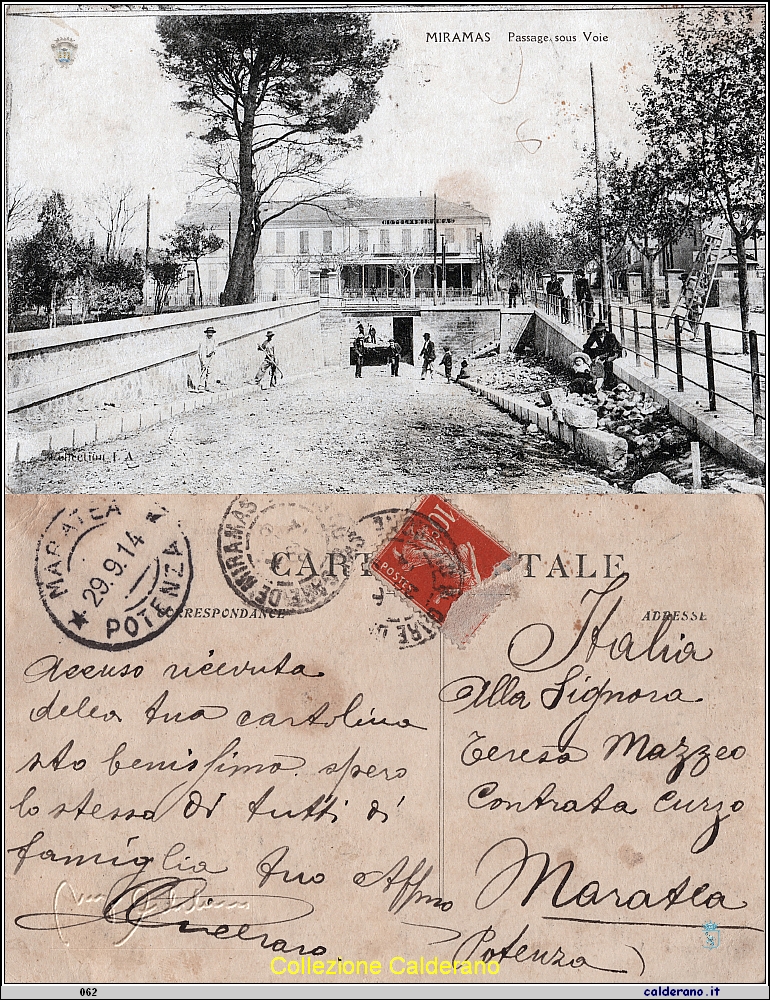 MIRAMAS Passage sous Voie
HOTEL MIRAMAS
Collection I A
MARATEA
29.9.14
POTENZA
GARE DE MIRAMAS
CARTE POSTALE
10
POSTES
CORRESPONDANCE
ADRESSE
Accuso ricevuta
della tua cartolina
sto benissimo spero
lo stesso di tutti di
famiglia tuo Affmo
Italia
Alla Signora
Teresa Mazzeo
Contrata Curzo
Maratea
Potenza
Collezione Calderano
062
calderano.it